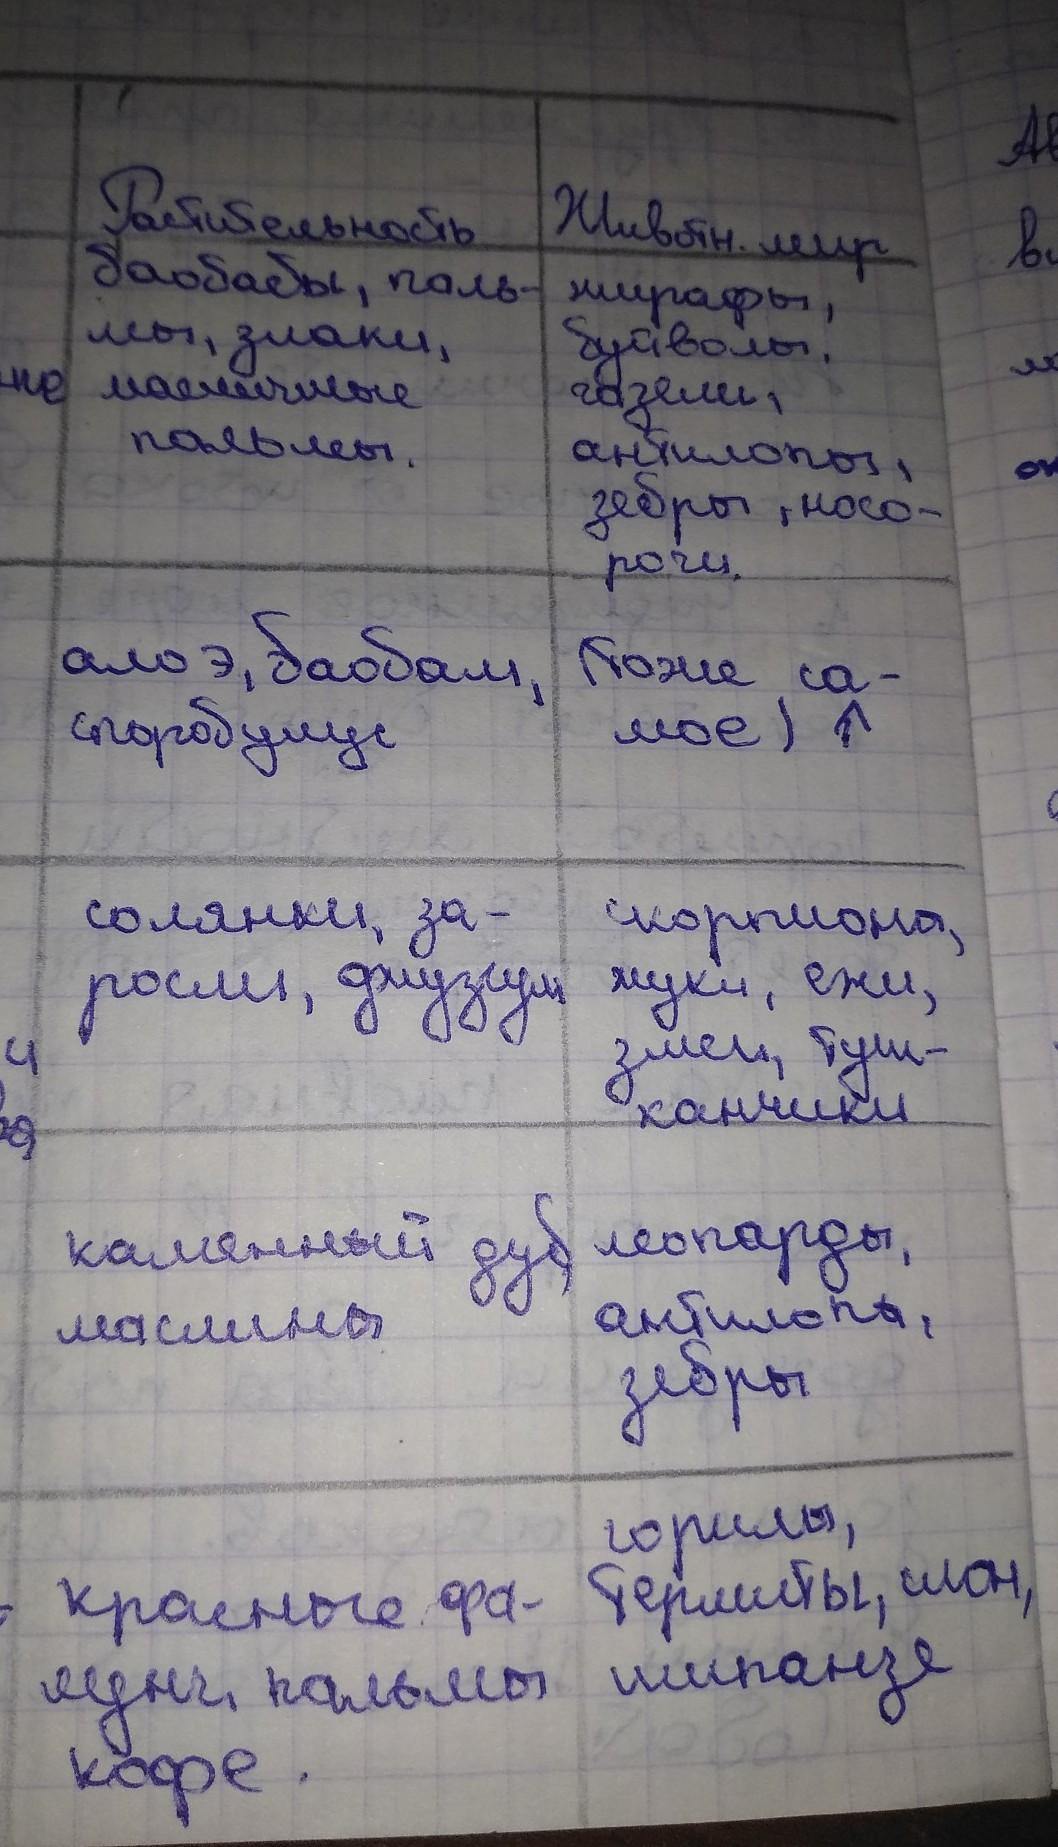 Растительность
Животн. мир
баобабы, паль-
мы, злаки,
масличные
пальмы.
жирафы,
буйволы,
газели,
антилопы,
зебры, носо-
роги.
алоэ, баобам,
споробулус
(тоже са-
мое) ↑
солянки, за-
росли, джузгум
скорпионы,
жуки, ежи,
змеи, туш-
канчики
каменный дуб,
маслины
леопарды,
антилопы,
зебры
красные фа-
пальмы
кофе.
горилы,
термиты, слон,
шипанзе